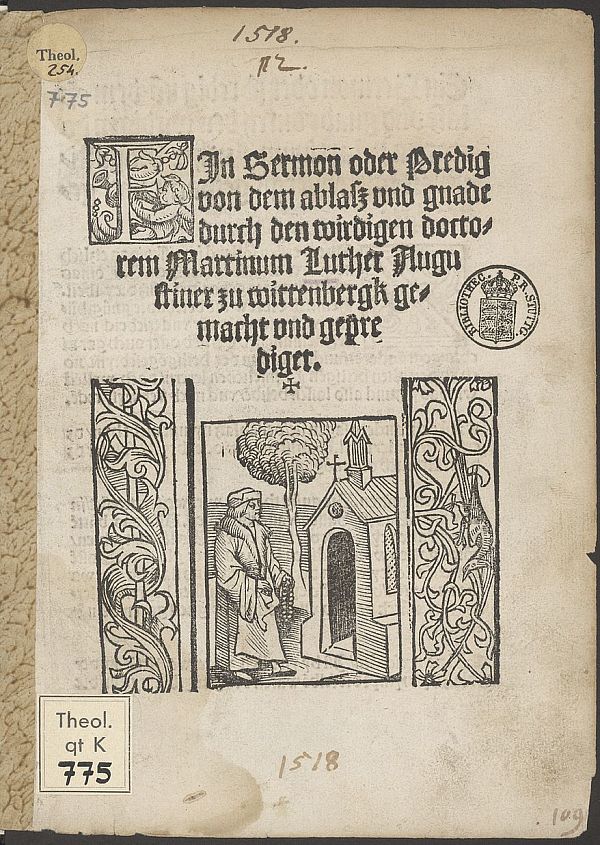 1518.
Theol.
254.
775
EIn Sermon oder Predig
von dem ablasz vnd gnade
durch den wirdigen docto⸗
rem Martinum Luther Augu
stiner zu wittenbergk ge⸗
macht vnd gepre
diget.
BIBLIOTHEC. PR. STUTTG.
Theol.
qt K
775
1518
109